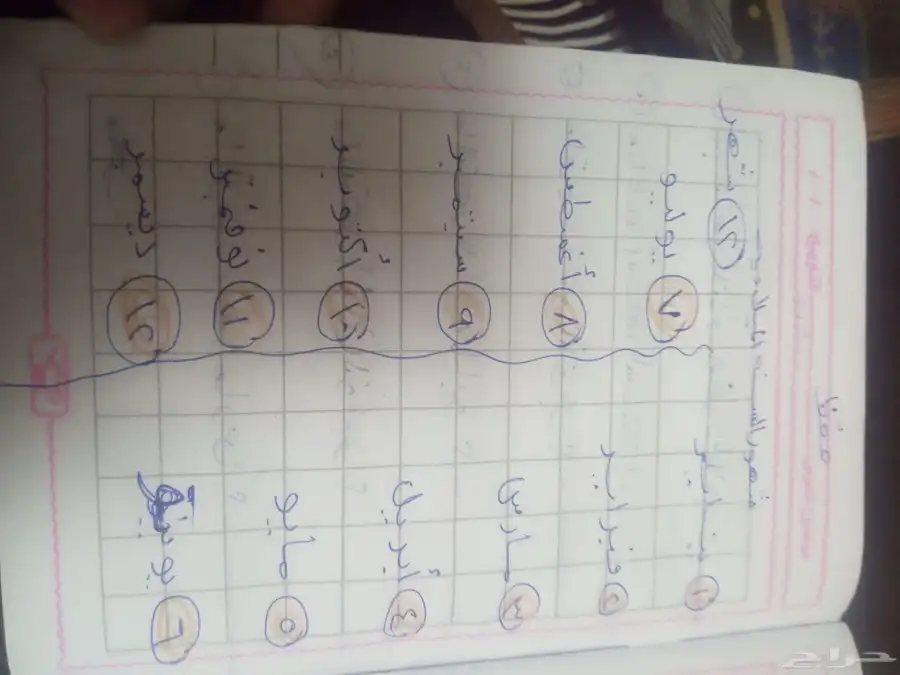 شهور السنه الميلاديه
١٢ شهر
١ يناير
٢ فبراير
٣ مارس
٤ أبريل
٥ مايو
٦ يونيو
٧ يوليو
٨ أغسطس
٩ سبتمبر
١٠ أكتوبر
١١ نوفمبر
١٢ ديسمبر
حراج